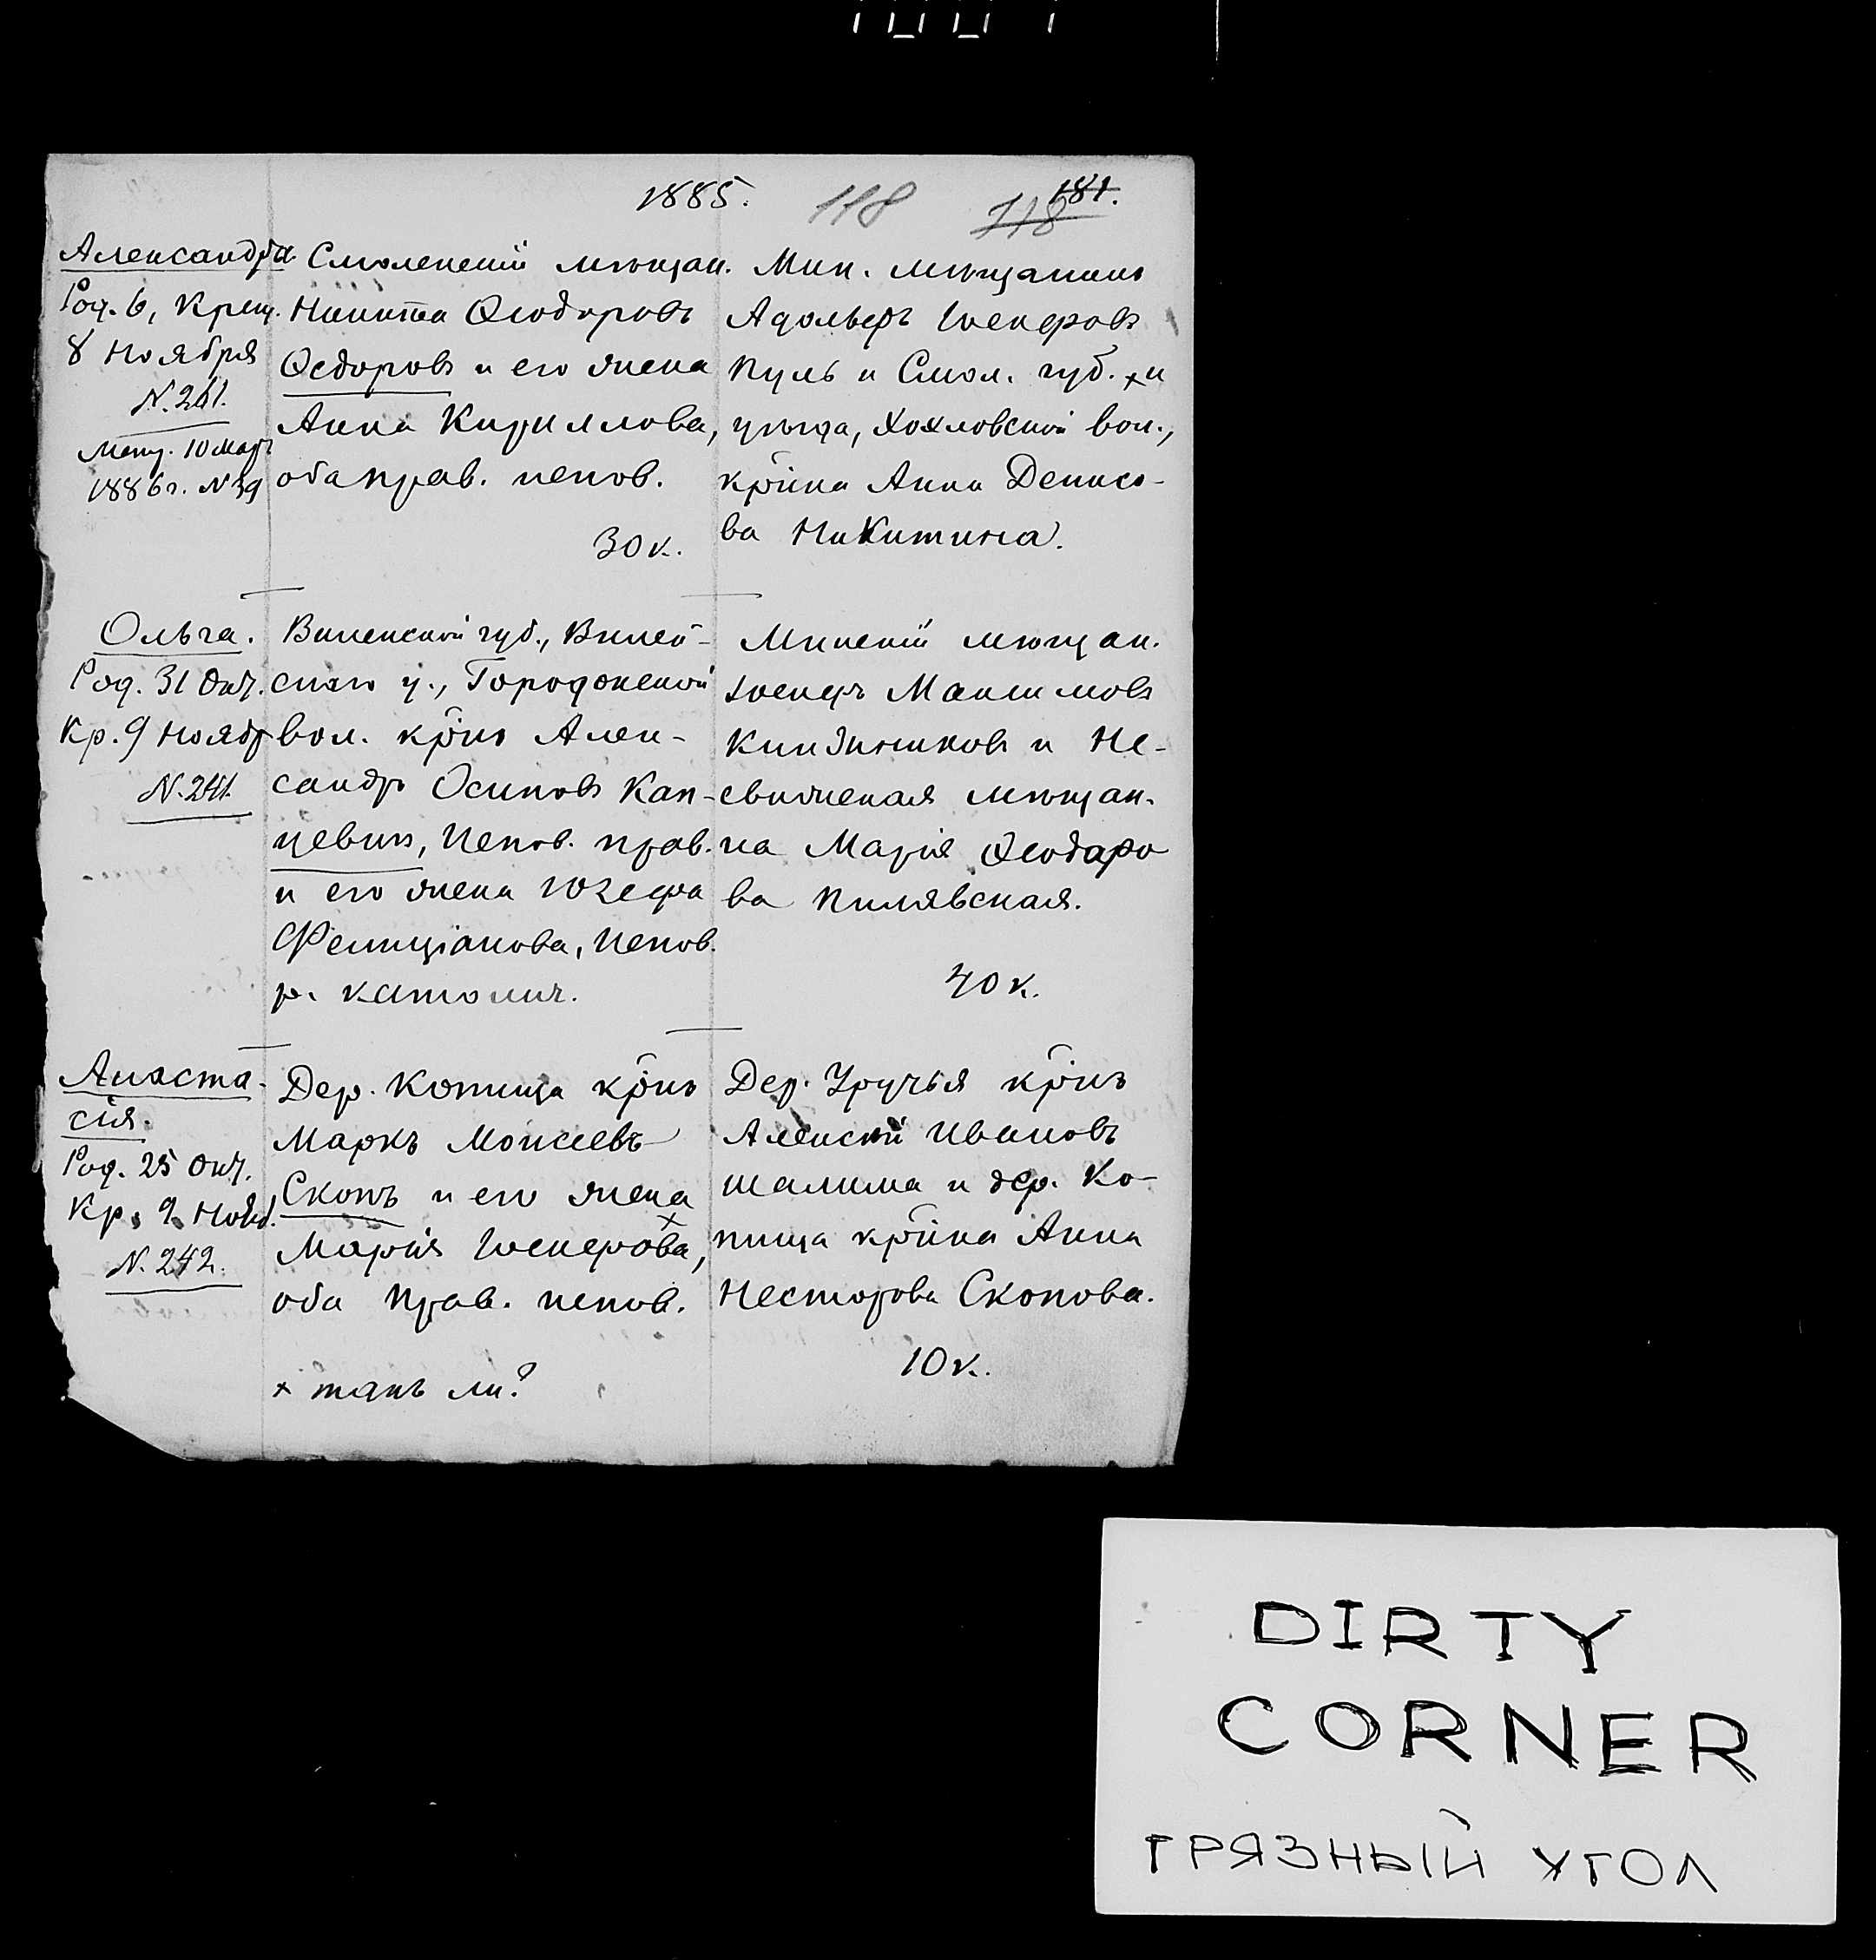 1885.
118
118
181.
Александра.
Род. 6, Крещ.
8 Ноября
N. 241.
Метр. 10 Мар.
1886 г. N 39
Смоленскій мѣщан.
Никита Ѳеодоровъ
Ѳедоровъ и его жена
Анна Кириллова,
оба прав. испов.
30 к.
Мин. мѣщанинъ
Адольфъ
Куль и Смол. губ. × и
уѣзда, Хохловской вол.,
кр̄інка Анна Денисо-
ва Никитина.
Ольга.
Род. 31 Окт.
Кр. 9 Ноябр
N. 241.
Виленской губ., Вилей-
скаго у., Городокской
вол. кр̄інъ Алек-
сандръ Осиповъ Кап-
цевичъ, испов. прав.
и его жена Юзефа
Фелиціанова, испов.
р. католич.
Минскій мѣщан.
Максимовъ
и Не-
свижская мѣщан-
ка Марія Ѳеодоро
ва Пилявская.
40 к.
Анаста-
сія.
Род. 25 Окт.
Кр. 9 Нояб.
N. 242.
Дер. Копища кр̄інъ
Маркъ Моисеевъ
Скопъ и его жена
×
Марія
оба прав. испов.
× такъ ли?
Дер. Уручья кр̄інъ
Алексѣй Ивановъ
Шалима и дер. Ко-
пища кр̄інка Анна
Несторова Скопова.
10 к.
DIRTY
CORNER
ГРЯЗНЫЙ УГОЛ